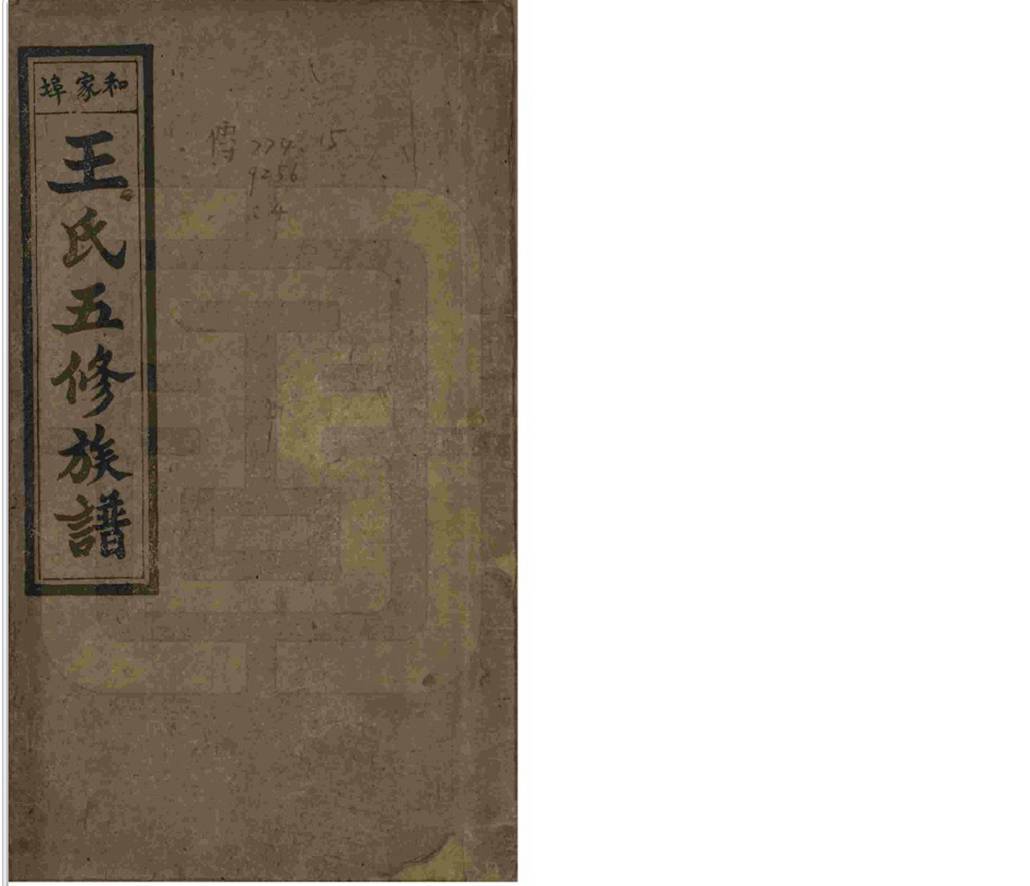 和家埠
王氏五修族譜
傳 774.15
9256
:4